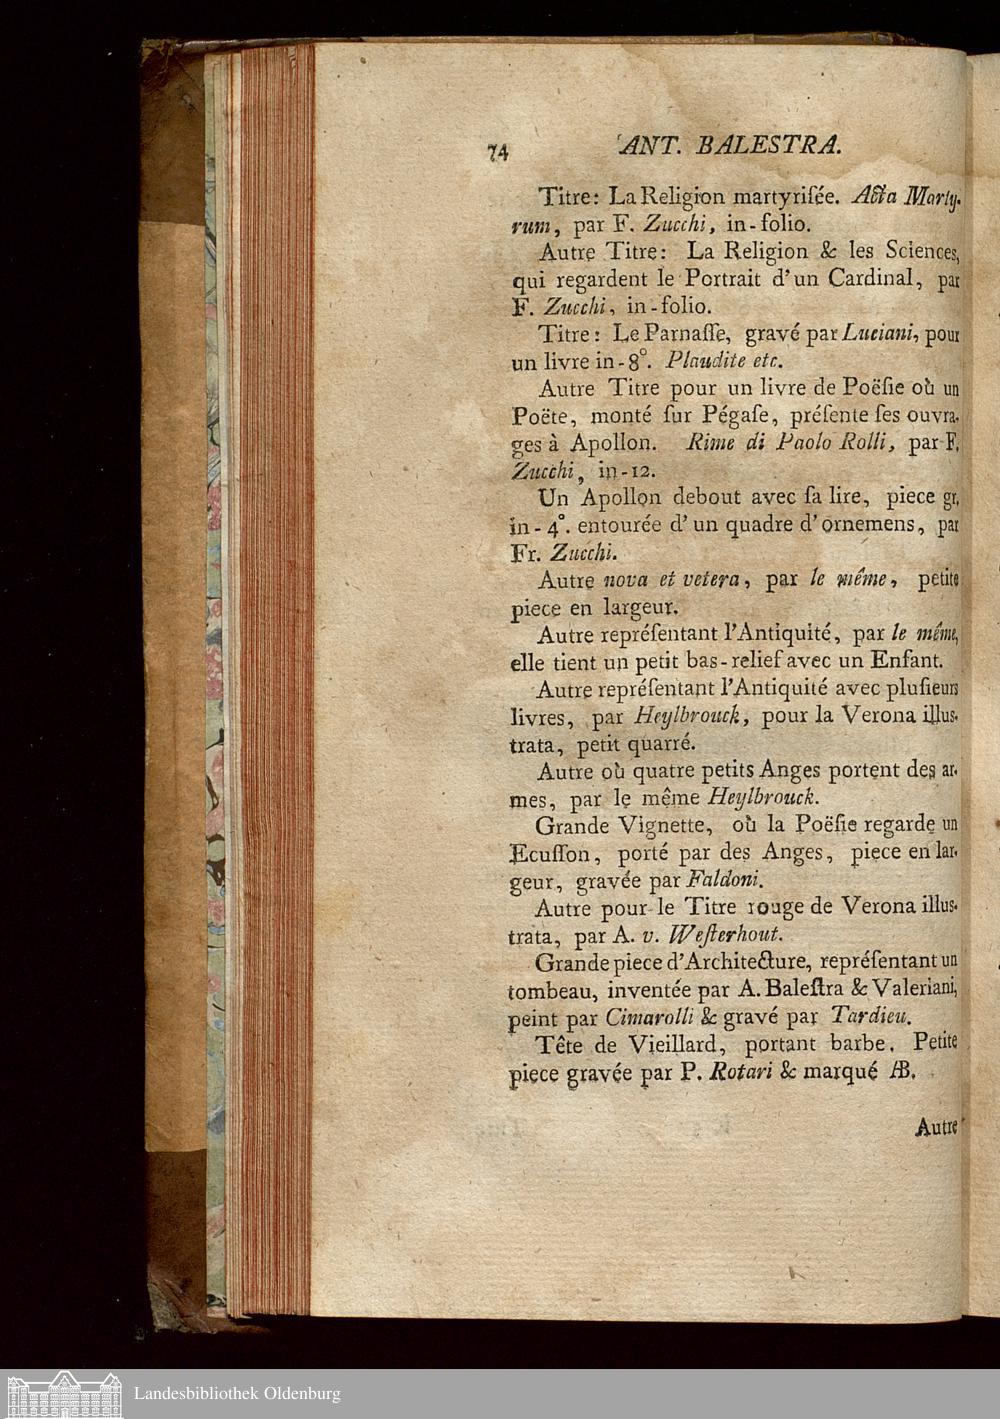 74 ANT. BALESTRA.
Titre: La Religion martyriſée. Acta Marty-
rum, par F. Zucchi, in-folio.
Autre Titre: La Religion & les Sciences,
qui regardent le Portrait d'un Cardinal, par
F. Zucchi, in-folio.
Titre: Le Parnaſſe, gravé par Luciani, pour
un livre in-8°. Plaudite etc.
Autre Titre pour un livre de Poëſie où un
Poëte, monté ſur Pégaſe, préſente ſes ouvra-
ges à Apollon. Rime di Paolo Rolli, par F.
Zucchi, in-12.
Un Apollon debout avec ſa lire, piece gr.
in-4°. entourée d'un quadre d'ornemens, par
Fr. Zucchi.
Autre nova et vetera, par le même, petite
piece en largeur.
Autre repréſentant l'Antiquité, par le même,
elle tient un petit bas-relief avec un Enfant.
Autre repréſentant l'Antiquité avec pluſieurs
livres, par Heylbrouck, pour la Verona illus-
trata, petit quarré.
Autre où quatre petits Anges portent des ar-
mes, par le même Heylbrouck.
Grande Vignette, où la Poëſie regarde un
Ecuſſon, porté par des Anges, piece en lar-
geur, gravée par Faldoni.
Autre pour le Titre rouge de Verona illus-
trata, par A. v. Weſterhout.
Grande piece d'Architecture, repréſentant un
tombeau, inventée par A. Baleſtra & Valeriani,
peint par Cimarolli & gravé par Tardieu.
Tête de Vieillard, portant barbe. Petite
piece gravée par P. Rotari & marqué AB.
Autre
Landesbibliothek Oldenburg